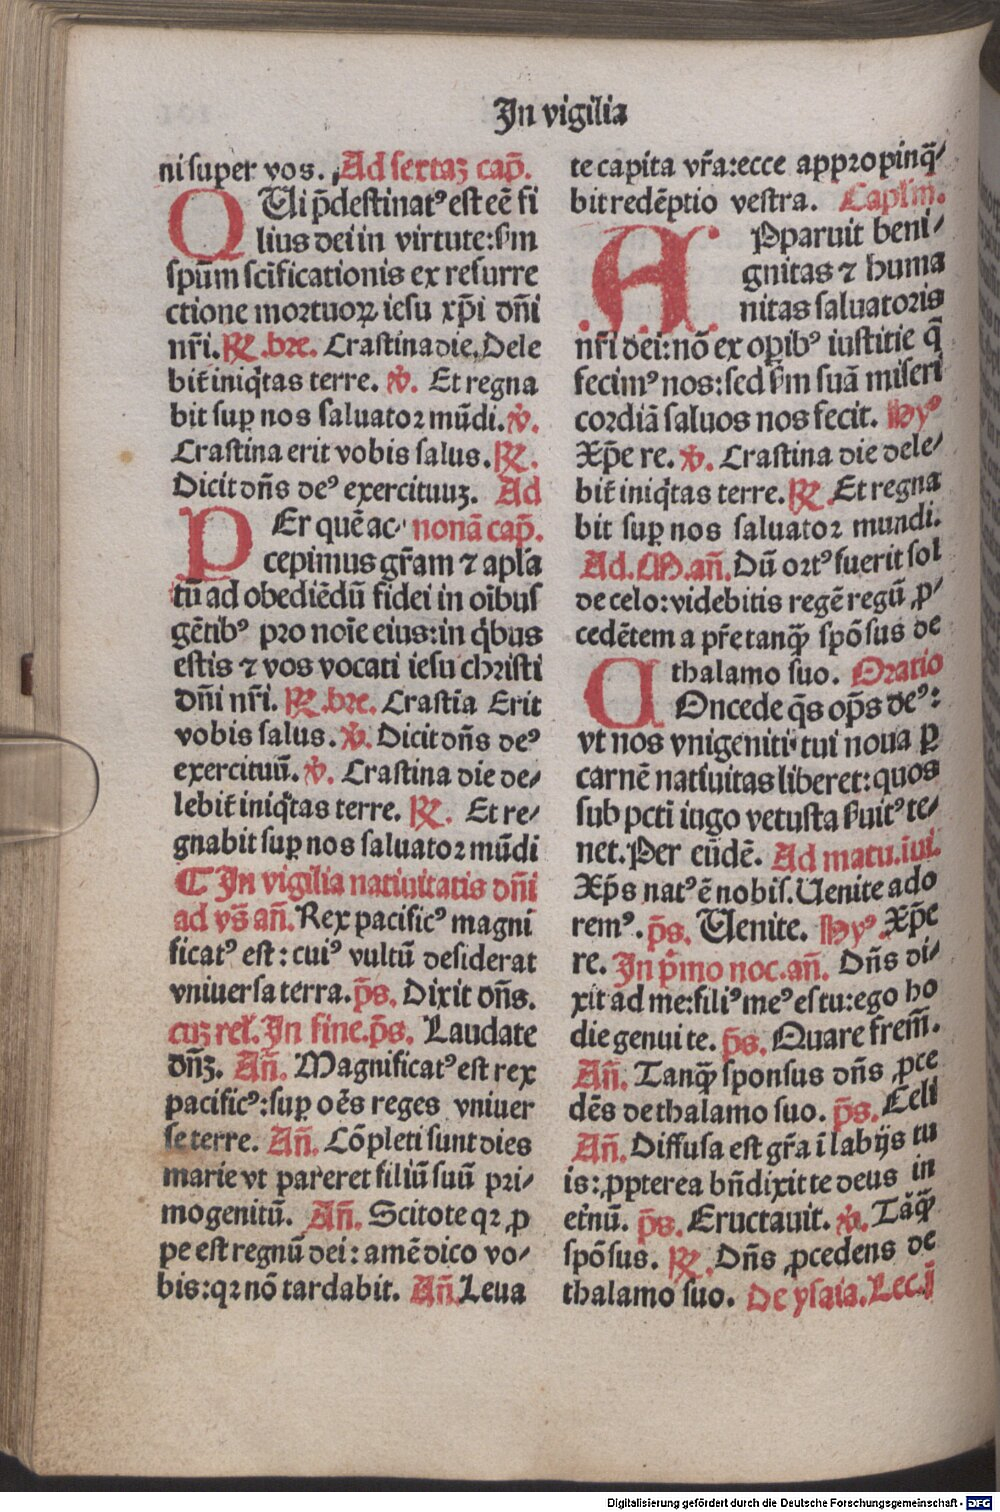 In vigilia
ni super vos. Ad sextaȝ cap̄.
QUi p̄destinatꝰ est eē fi
lius dei in virtute: s̄m
spūm sc̄ificationis ex resurre
ctione mortuoꝝ iesu xp̄i dn̄i
nr̄i. ℞. bre. Crastina die. Dele
bit̄ iniq̄tas terre. ℣. Et regna
bit suꝑ nos saluator mūdi. ℣.
Crastina erit vobis salus. ℞.
Dicit dn̄s deꝰ exercituuȝ. Ad
PEr quē ac- nonā cap̄.
cepimus gr̄am ⁊ apl̄a
tū ad obediēdū fidei in oībus
gētibꝰ pro noīe eius: in q̄bus
estis ⁊ vos vocati iesu christi
dn̄i nr̄i. ℞. bre. Crastīa Erit
vobis salus. ℣. Dicit dn̄s deꝰ
exercituū. ℣. Crastina die de/
lebit̄ iniq̄tas terre. ℞. Et re/
gnabit suꝑ nos saluator mūdi
¶ In vigilia natiuitatis dn̄i
ad vs̄ an̄. Rex pacificꝰ magni
ficatꝰ est: cuiꝰ vultū desiderat
vniuersa terra. p̄s. Dixit dn̄s.
cuȝ rel̄. In fine. p̄s. Laudate
dn̄ȝ. An̄. Magnificatꝰ est rex
pacificꝰ: suꝑ oēs reges vniuer
se terre. An̄. Cōpleti sunt dies
marie vt pareret filiū suū pri/
mogenitū. An̄. Scitote qꝛ ꝓ
pe est regnū dei: amē dico vo/
bis: qꝛ nō tardabit. An̄. Leua
te capita vr̄a: ecce appropinq̄/
bit redēptio vestra. Capl̄m.
APparuit beni/
gnitas ⁊ huma
nitas saluatoris
nr̄i dei: nō ex oꝑibꝰ iustitie q̄
fecimꝰ nos: sed s̄m suā miseri
cordiā saluos nos fecit. Hyꝰ
Xp̄e re. ℣. Crastina die dele/
bit̄ iniq̄tas terre. ℞. Et regna
bit suꝑ nos saluator mundi.
Ad. M. an̄. Dū ortꝰ fuerit sol
de celo: videbitis regē regū ꝓ/
cedētem a pr̄e tanq̄ȝ spōsus de
thalamo suo. Oratio
COncede q̄s op̄s deꝰ:
vt nos vnigeniti tui noua ꝑ
carnē natiuitas liberet: quos
sub pcti iugo vetusta s̄uitꝰ te/
net. Per eūdē. Ad matu. iui.
Xp̄s natꝰ ē nobis. Uenite ado
remꝰ. p̄s. Uenite. Hyꝰ. Xp̄e
re. In p̄mo noc. an̄. Dn̄s di/
xit ad me: filiꝰ meꝰ es tu: ego ho
die genui te. p̄s. Quare frem̄.
An̄. Tanq̄ȝ sponsus dn̄s ꝓce
dēs de thalamo suo. p̄s. Celi
An̄. Diffusa est gr̄a ī labijs tu
is: ꝓpterea bn̄dixit te deus in
et̄nū. p̄s. Eructauit. ℣. Tāq̄ȝ
spōsus. ℞. Dn̄s ꝓcedens de
thalamo suo. De ysaia. Lec. j
Digitalisierung gefördert durch die Deutsche Forschungsgemeinschaft - DFG